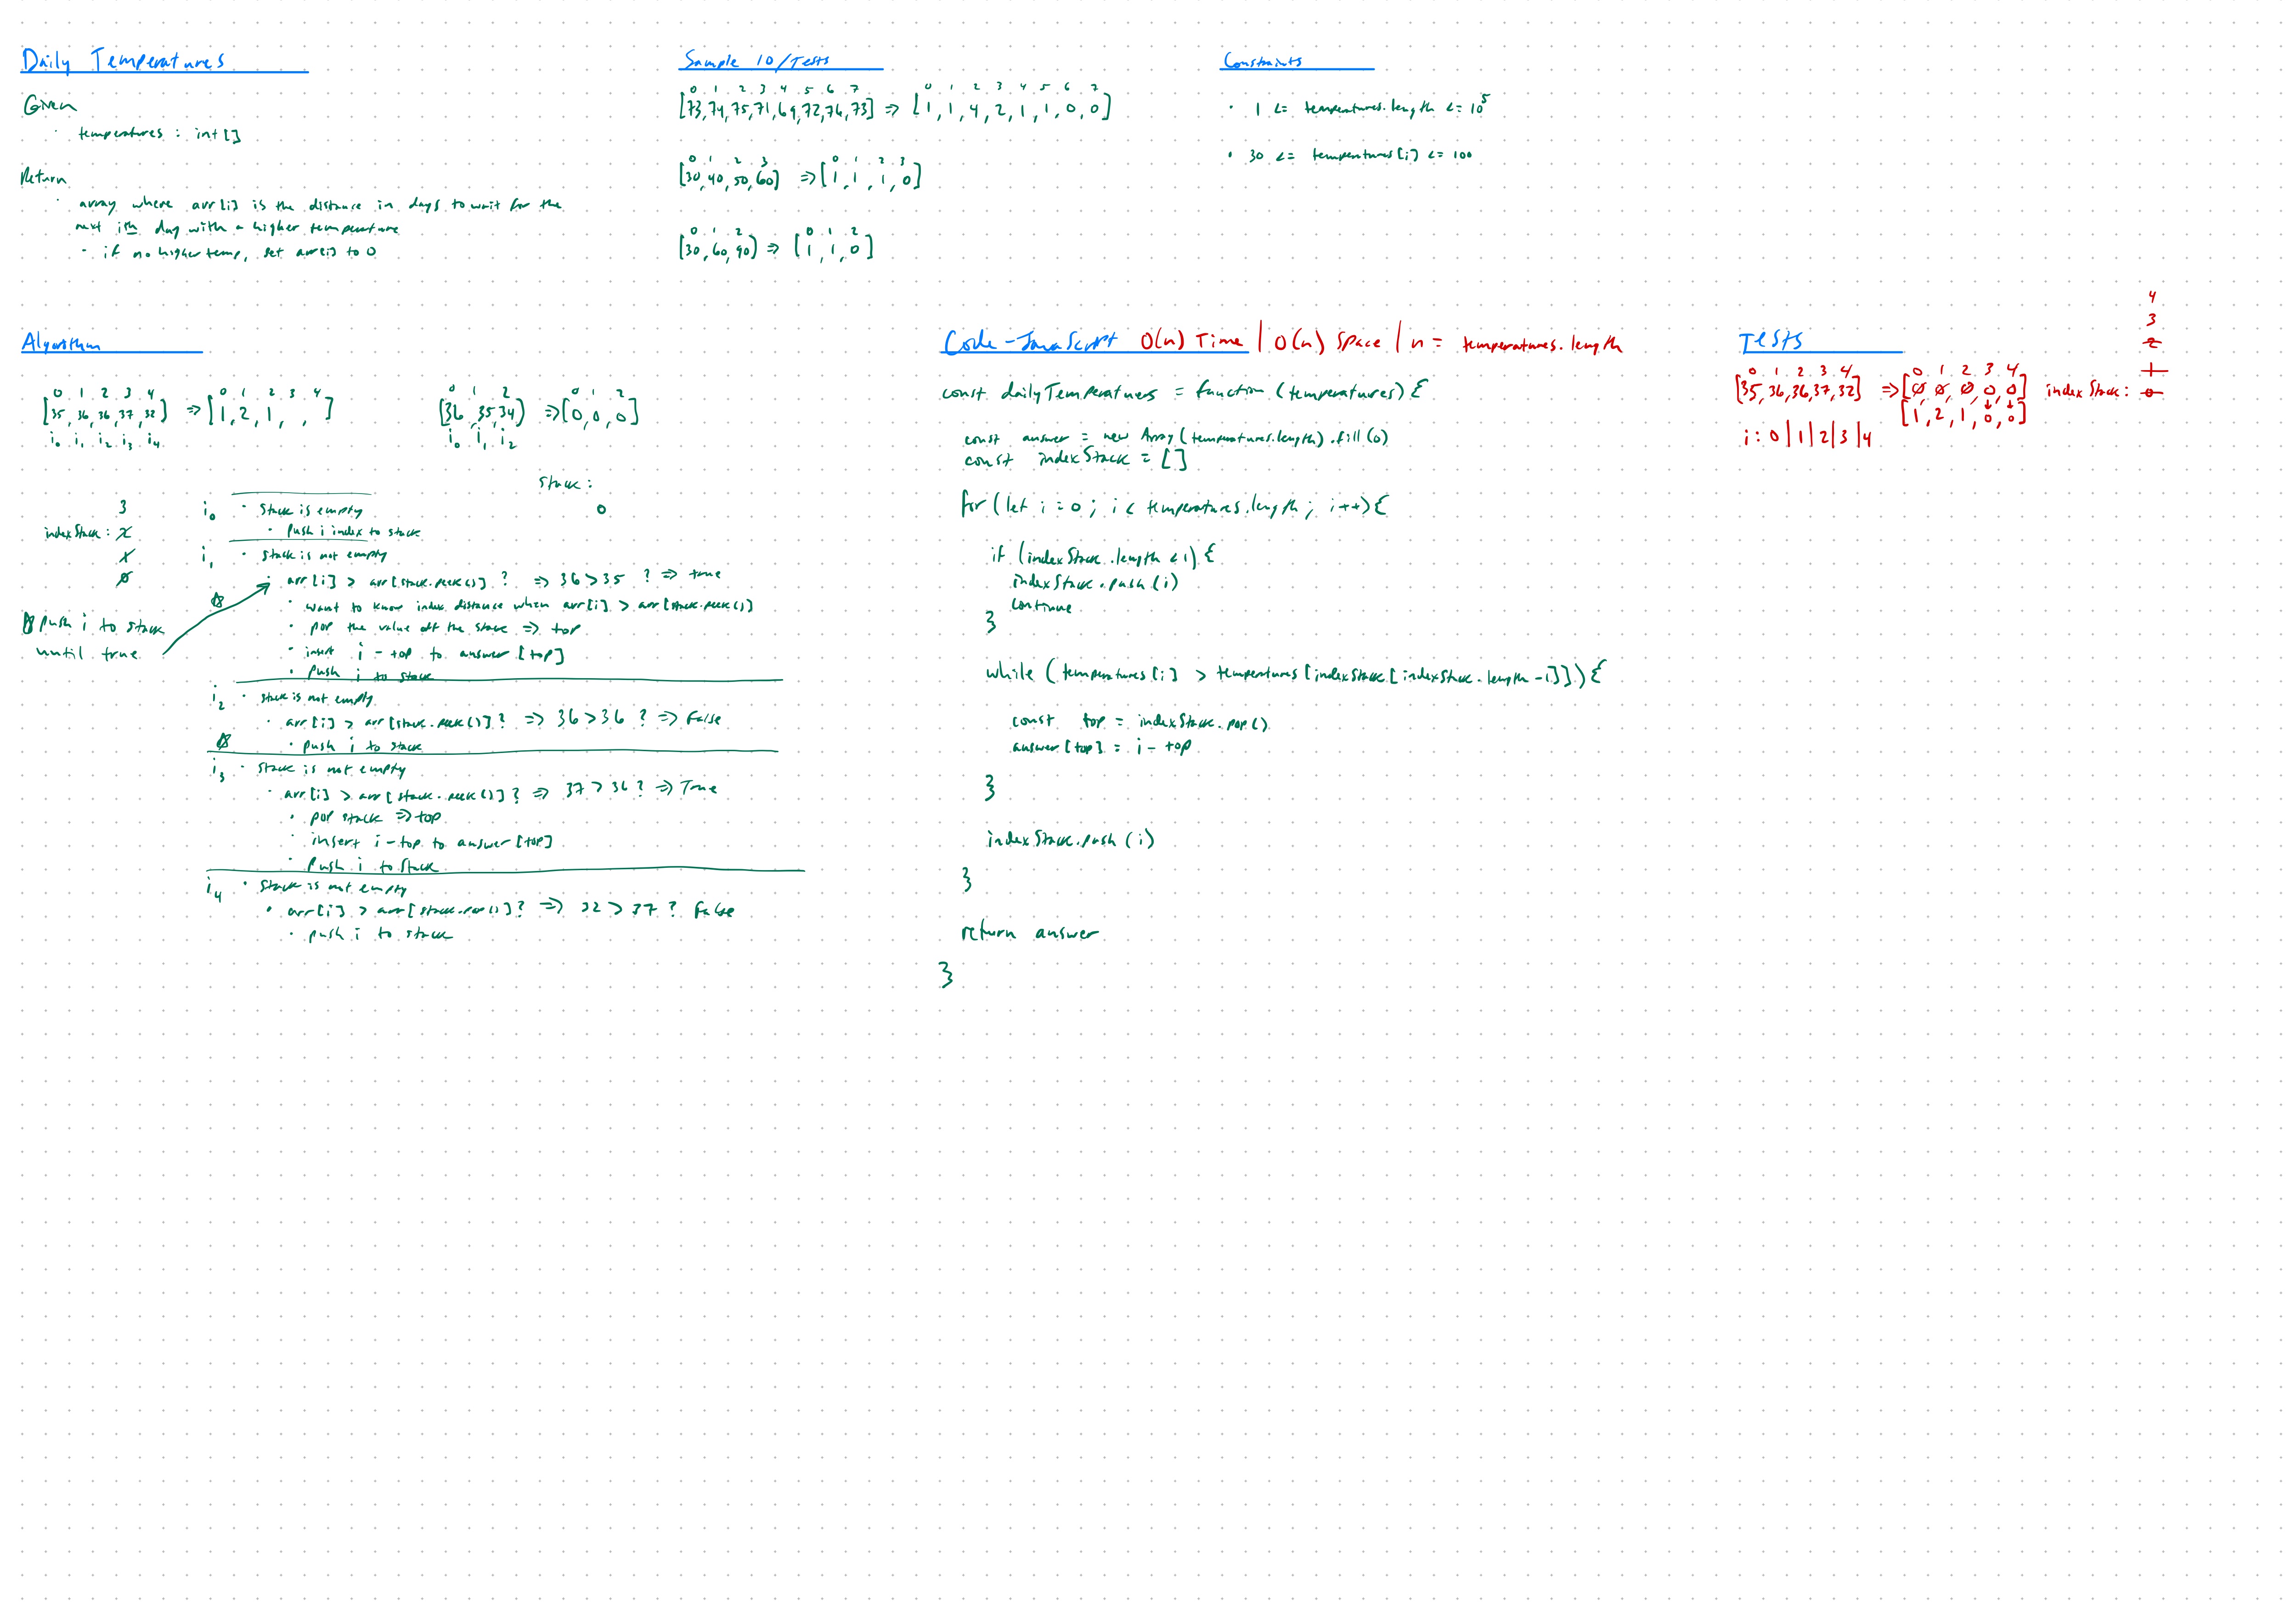 Daily Temperatures
Given
· temperatures : int[]
Return
· array where arr[i] is the distance in days to wait for the
next ith day with a higher temperature
- if no higher temp, set arr[i] to 0
Sample IO/Tests
0 1 2 3 4 5 6 7 0 1 2 3 4 5 6 7
[73,74,75,71,69,72,76,73] => [1,1,4,2,1,1,0,0]
0 1 2 3 0 1 2 3
[30,40,50,60] => [1,1,1,0]
0 1 2 0 1 2
[30,60,90] => [1,1,0]
Constraints
· 1 <= temperatures.length <= 10^5
· 30 <= temperatures[i] <= 100
Algorithm
0 1 2 3 4 0 1 2 3 4
[35,36,36,37,32] => [1,2,1, , ]
i0 i1 i2 i3 i4
0 1 2 0 1 2
[36,35,34] => [0,0,0]
i0 i1 i2
stack:
0
3
indexStack: 2
1
0
push i to stack
until true
i0 · stack is empty
· push i index to stack
i1 · stack is not empty
· arr[i] > arr[stack.peek()] ? => 36>35 ? => true
· want to know index distance when arr[i] > arr[stack.peek()]
· pop the value off the stack => top
· insert i - top to answer[top]
· push i to stack
i2 · stack is not empty
· arr[i] > arr[stack.peek()] ? => 36>36 ? => False
· push i to stack
i3 · stack is not empty
· arr[i] > arr[stack.peek()] ? => 37>36 ? => True
· pop stack => top
· insert i-top to answer[top]
· push i to stack
i4 · stack is not empty
· arr[i] > arr[stack.pop()] ? => 32>37 ? False
· push i to stack
Code - JavaScript O(n) Time | O(n) Space | n = temperatures.length
const dailyTemperatures = function (temperatures) {
const answer = new Array(temperatures.length).fill(0)
const indexStack = []
for (let i = 0; i < temperatures.length; i++) {
if (indexStack.length < 1) {
indexStack.push(i)
continue
}
while (temperatures[i] > temperatures[indexStack[indexStack.length -1]]) {
const top = indexStack.pop()
answer[top] = i - top
}
indexStack.push(i)
}
return answer
}
Tests
0 1 2 3 4 0 1 2 3 4
[35,36,36,37,32] => [0,0,0,0,0]
[1,2,1,0,0]
i: 0|1|2|3|4
4
3
2
1
indexStack: 0